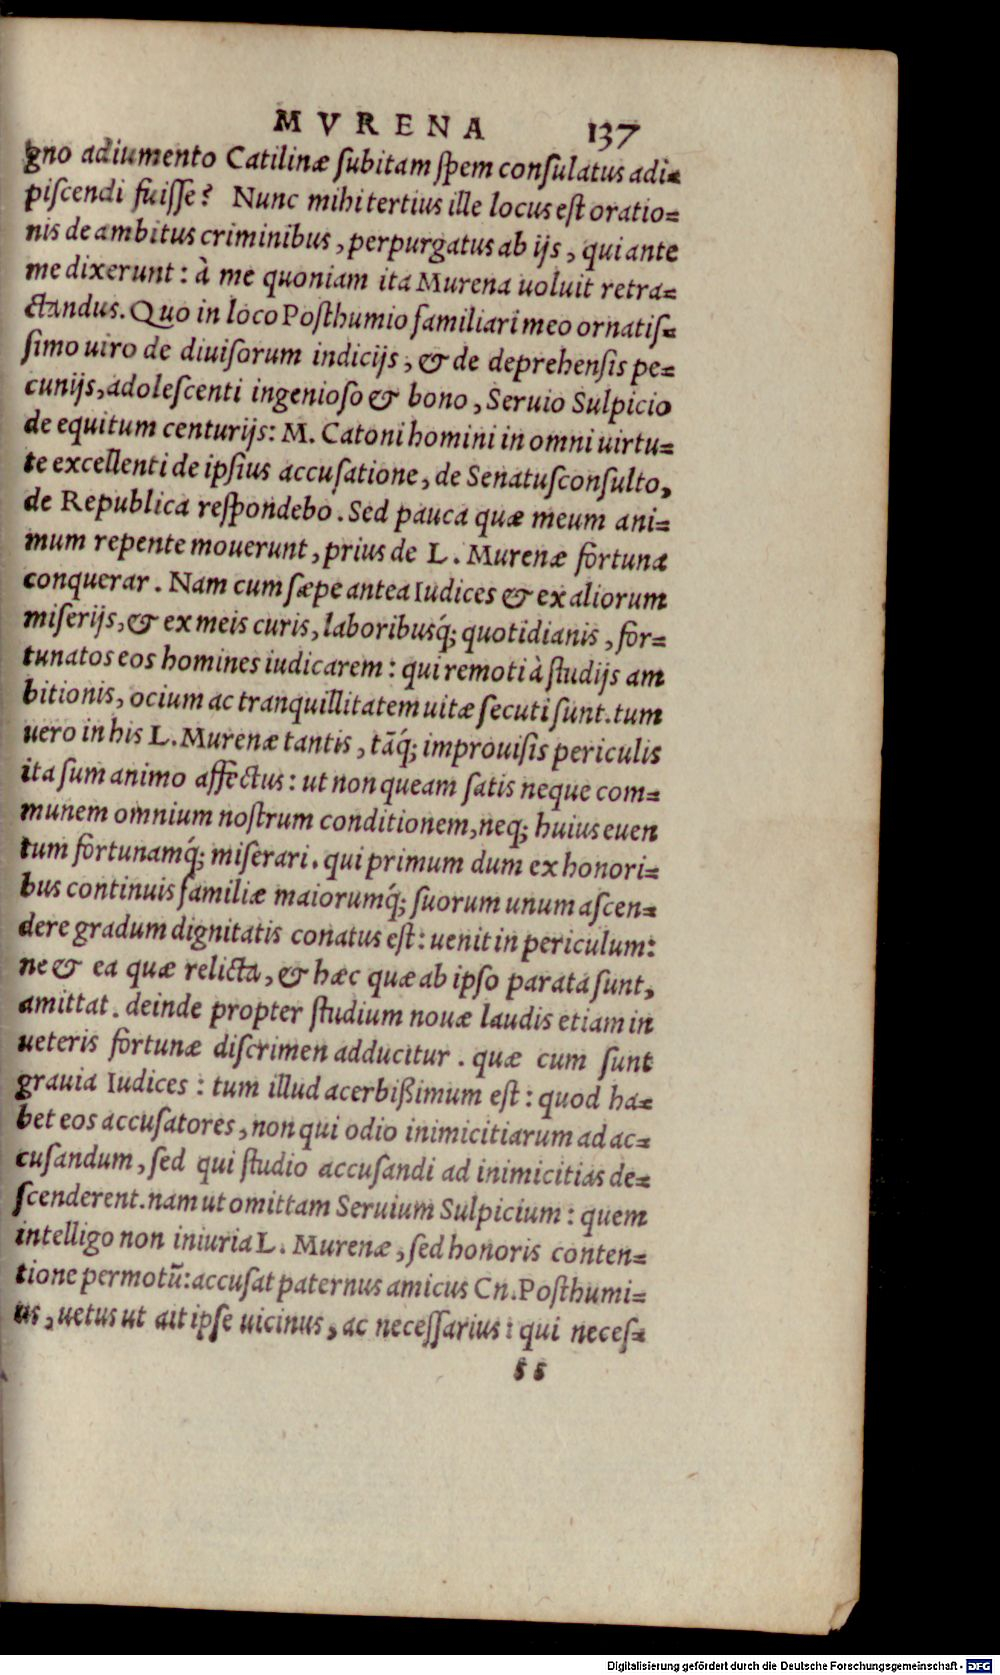 MVRENA 137
gno adiumento Catilinæ ſubitam ſpem conſulatus adi=
piſcendi fuiſſe? Nunc mihi tertius ille locus eſt oratio=
nis de ambitus criminibus, perpurgatus ab ijs, qui ante
me dixerunt: à me quoniam ita Murena uoluit retra=
ctandus. Quo in loco Poſthumio familiari meo ornatiſ=
ſimo uiro de diuiſorum indicijs, & de deprehenſis pe=
cunijs, adoleſcenti ingenioſo & bono, Seruio Sulpicio
de equitum centurijs: M. Catoni homini in omni uirtu=
te excellenti de ipſius accuſatione, de Senatuſconſulto,
de Republica reſpondebo. Sed pauca quæ meum ani=
mum repente mouerunt, prius de L. Murenæ fortuna
conquerar. Nam cum ſæpe antea Iudices & ex aliorum
miſerijs, & ex meis curis, laboribusq́; quotidianis, for=
tunatos eos homines iudicarem: qui remoti à ſtudijs am
bitionis, ocium ac tranquillitatem uitæ ſecuti ſunt. tum
uero in his L. Murenæ tantis, tāq́; improuiſis periculis
ita ſum animo affectus: ut non queam ſatis neque com=
munem omnium noſtrum conditionem, neq; huius euen
tum fortunamq́; miſerari. qui primum dum ex honori=
bus continuis familiæ maiorumq́; ſuorum unum aſcen=
dere gradum dignitatis conatus eſt: uenit in periculum:
ne & ea quæ relicta, & hæc quæ ab ipſo parata ſunt,
amittat. deinde propter ſtudium nouæ laudis etiam in
ueteris fortunæ diſcrimen adducitur. quæ cum ſunt
grauia Iudices: tum illud acerbißimum eſt: quod ha=
bet eos accuſatores, non qui odio inimicitiarum ad ac=
cuſandum, ſed qui ſtudio accuſandi ad inimicitias de=
ſcenderent. nam ut omittam Seruium Sulpicium: quem
intelligo non iniuria L. Murenæ, ſed honoris conten=
tione permotū: accuſat paternus amicus Cn. Poſthumi=
us, uetus ut ait ipſe uicinus, ac neceſſarius: qui neceſ=
ſs
Digitalisierung gefördert durch die Deutsche Forschungsgemeinschaft - DFG